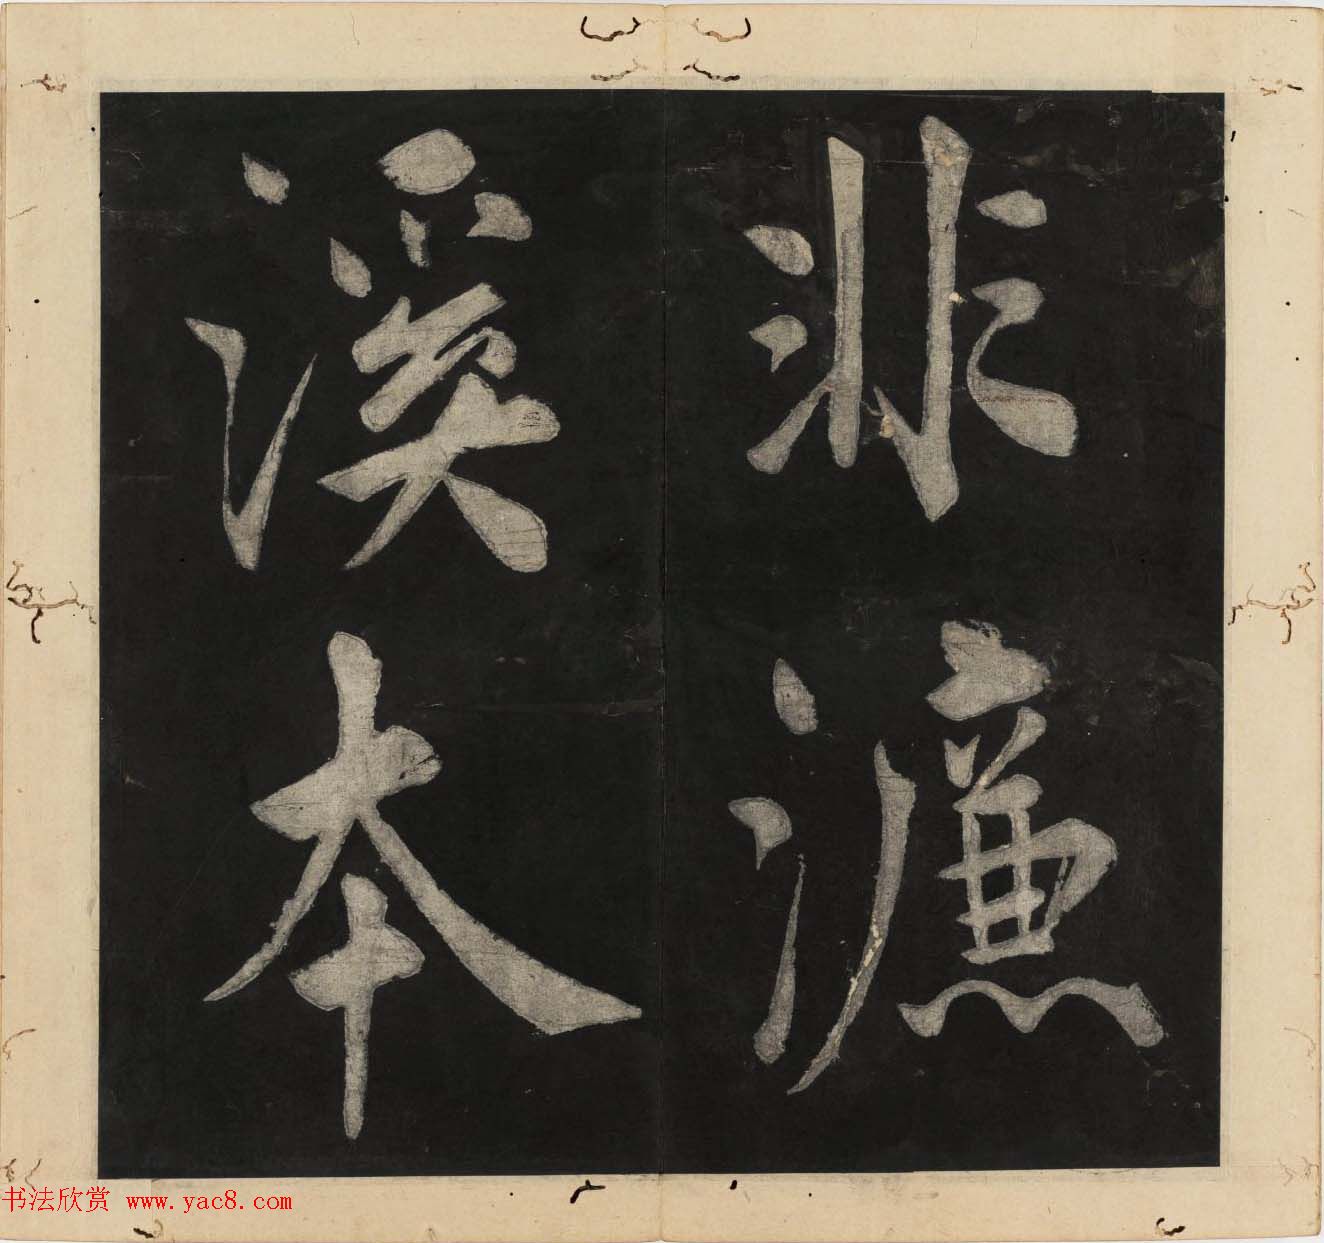 非濂
溪本
书法欣赏 www.yac8.com